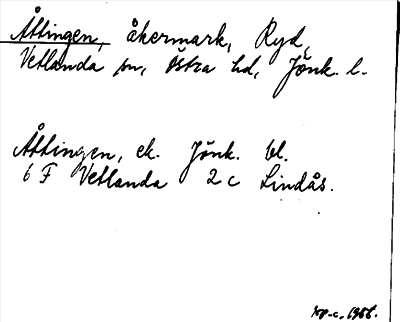 Åttingen, åkermark, Ryd,
Vetlanda sn, Östra hd, Jönk. l.
Åttingen, ek. Jönk. bl.
6 F Vetlanda 2 c Lindås.